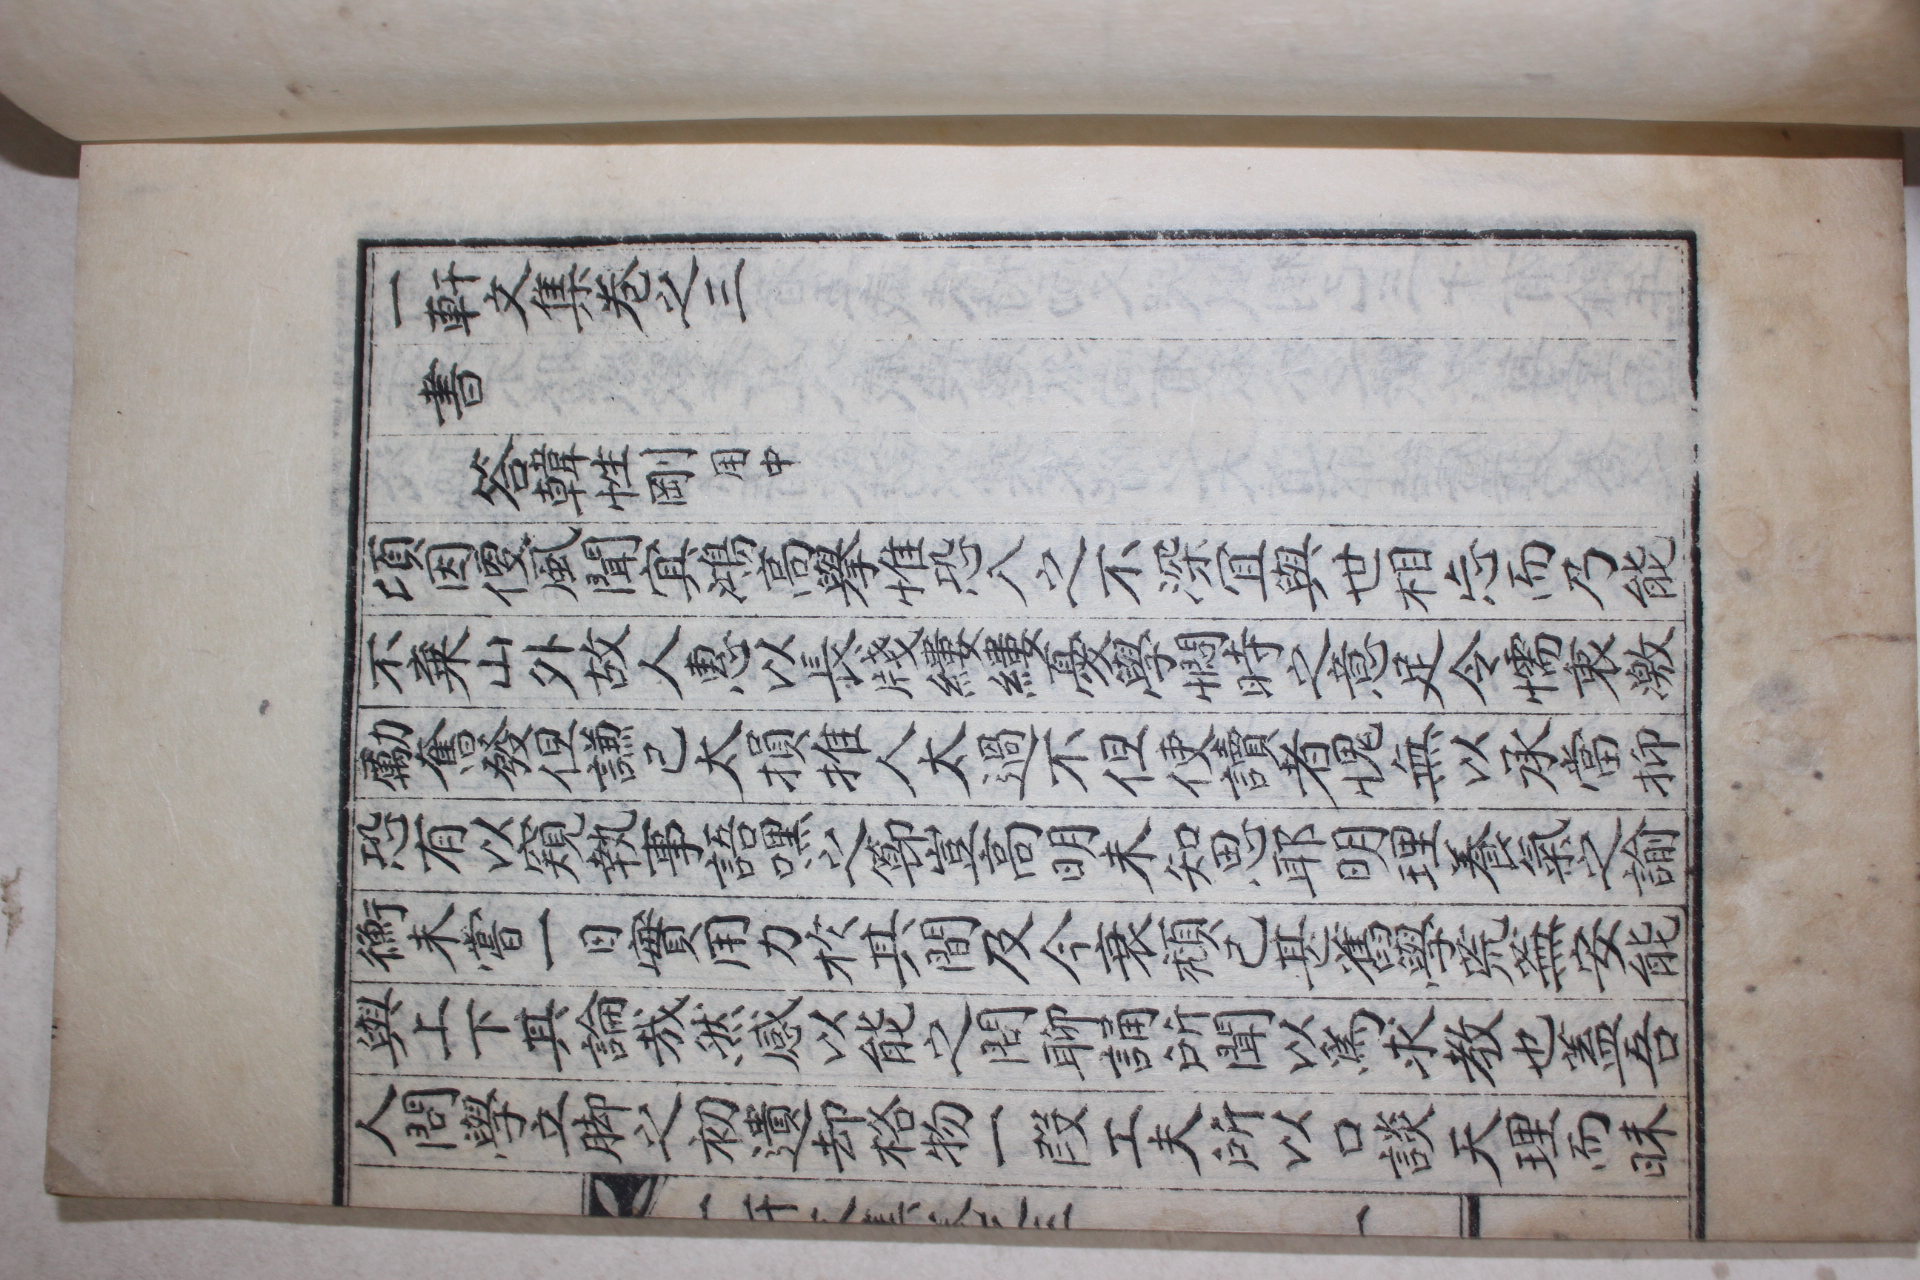 一軒文集卷之三
書
答韓性剛 用中
頃因便風聞寘鴻高擧惟恐入之不深宜與世相忘而乃能
不棄山外故人惠以長牋縷縷憂學憫時之意足令懦衷激
勵奮發但謙己太損推人太過不但使讀者愧無以承當抑
恐有以窺執事語嘿之節豈高明未知思耶明理養氣之諭
衡未嘗一日實用力於其間及今衰頹已甚舊學荒蕪安能
與上下其論哉然感以能之問聊誦所聞以爲求教也蓋吾
人問學立脚之初遺却格物一段工夫所以口談天理而昧
一軒文集卷之三
一